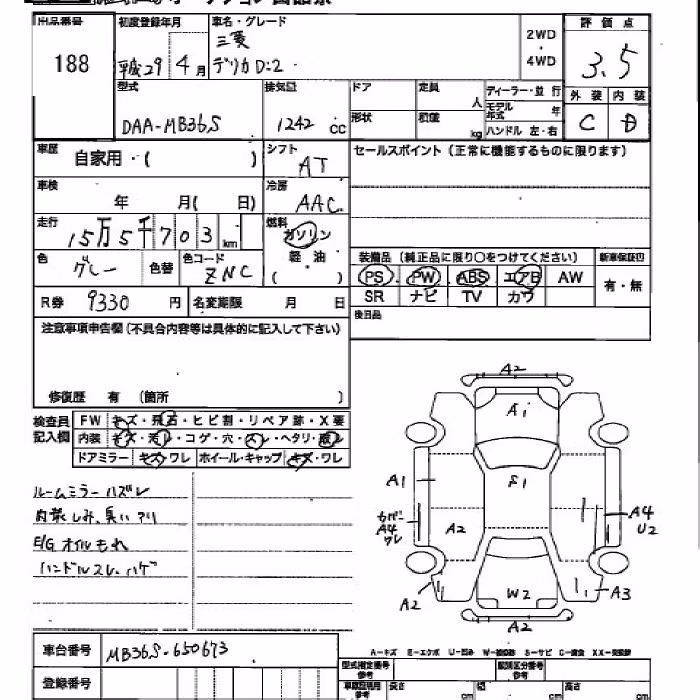 出品番号 188
初度登録年月 平成29年 4月
車名・グレード 三菱 デリカD:2
2WD ・ 4WD
評価点 3.5
外装 内装
C D
型式 DAA-MB36S
排気量 1242 cc
ドア 形状
定員 人
積載 kg
ディーラー・並行
モデル年式 年
ハンドル 左・右
車歴 自家用・( )
シフト AT
セールスポイント(正常に機能するものに限ります)
車検 年 月( 日)
冷房 AAC
走行 15万5千703 km
燃料 ガソリン 軽油 ( )
色 グレー 色替
色コード ZNC
装備品(純正品に限り○をつけてください)
PS PW ABS エアB AW
SR ナビ TV カワ
新車保証書
有・無
R券 9330 円
名変期限 月 日
後日品
注意事項申告欄(不具合内容等は具体的に記入して下さい)
修復歴 有 (箇所 )
検査員記入欄
FW キズ・飛石・ヒビ割・リペア跡・X要
内装 キズ・汚レ・コゲ・穴・スレ・ヘタリ・破レ
ドアミラー キズ・ワレ ホイール・キャップ キズ・ワレ
ルームミラーハズレ
内装しみ、臭いアリ
E/G オイルもれ
ハンドルスレ、ハゲ
A2
A1
A1
S1
A4
U2
カバー
A4
ワレ
A2
W2
A2
A3
A2
A-キズ E-エクボ U-凹み W-補修跡 S-サビ C-腐食 XX-交換済
車台番号 MB36S-650673
登録番号
型式指定番号 参考
類別区分番号 参考
参考 長さ cm 幅 cm 高さ cm